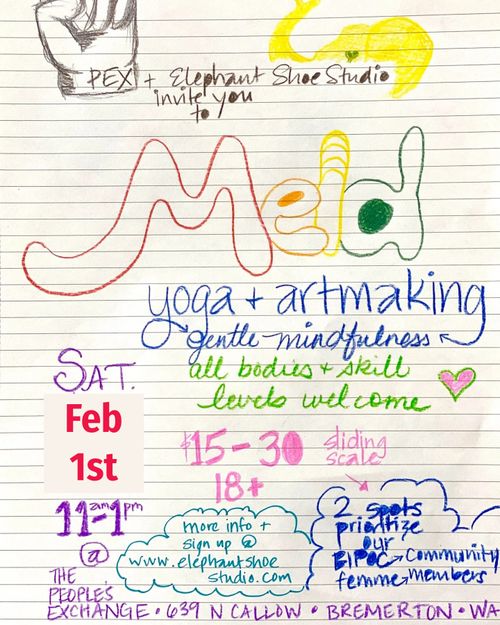 PEX + Elephant Shoe Studio
invite you
to
Meld
yoga + artmaking
gentle mindfulness
all bodies + skill
levels welcome
SAT.
Feb
1st
11am-1pm
@
THE
PEOPLE'S
EXCHANGE • 639 N CALLOW • BREMERTON • WA
$15-30
sliding
scale
18+
more info +
sign up @
www.elephantshoe
studio.com
2 spots
prioritize
our
BIPOC community
femme members